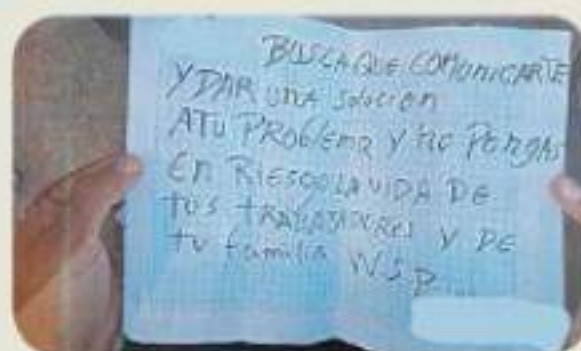 BUSCA QUE COMUNICARTE
Y DAR UNA SOLUCION
A TU PROBLEMA Y NO PONGAS
EN RIESGO LA VIDA DE
TUS TRABAJADORES Y DE
TU familia W.S.P